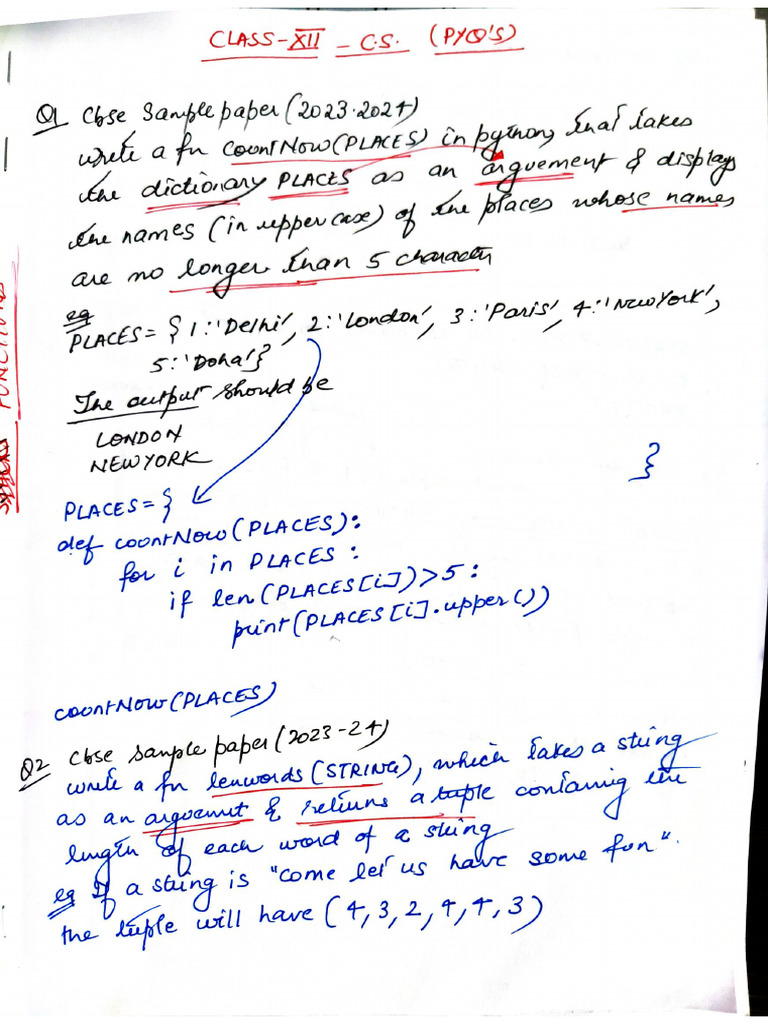 CLASS-XII - C.S. (PYQ'S)
Q1 Cbse Sample paper (2023-2024)
write a fn countNow(PLACES) in python, that takes
the dictionary PLACES as an arguement & displays
the names (in uppercase) of the places whose names
are no longer than 5 character
eg
PLACES = { 1:'Delhi', 2:'London', 3:'Paris', 4:'NewYork',
5:'Doha'}
The output should be
LONDON
NEWYORK
}
PLACES = {
def countNow(PLACES):
for i in PLACES :
if len(PLACES[i])>5 :
print(PLACES[i].upper())
countNow(PLACES)
Q2 Cbse sample paper (2023-24)
write a fn lenwords(STRING), which takes a string
as an arguemnt & returns a tuple containing the
length of each word of a string
eg If a string is "come let us have some fun".
the tuple will have (4,3,2,4,4,3)
FUNCTIONS